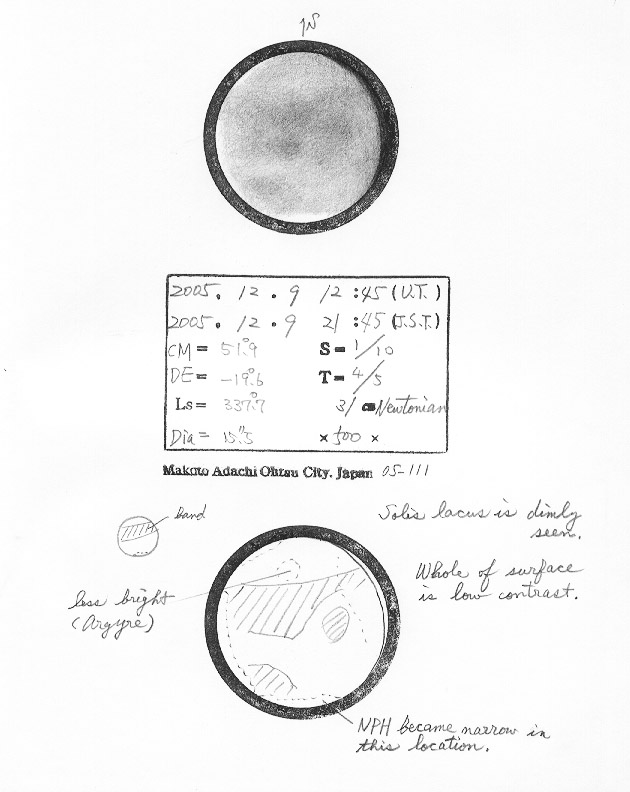 2005. 12. 9 12:45 (U.T.)
2005. 12. 9 21:45 (J.S.T.)
CM = 51.°9 S = 1/10
DE = -19.°6 T = 4/5
Ls = 337.°7 31 cm Newtonian
Dia = 15."5 × 500 ×
Makoto Adachi Ohtsu City. Japan 05-111
Band
Solis lacus is dimly
seen.
Whole of surface
is low contrast.
less bright
(Argyre)
NPH became narrow in
this location.